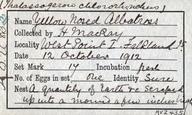 (Thalassogeron chlororhynchus)
Name Yellow nosed Albatross
Collected by H MacKay
Locality West Point I. Falkland Is
Date 12 October 1912
Set Mark 14 Incubation fresh
No. of Eggs in set One Identity Sure
Nest A quantity of Earth &c scraped
up into a mound a few inches high